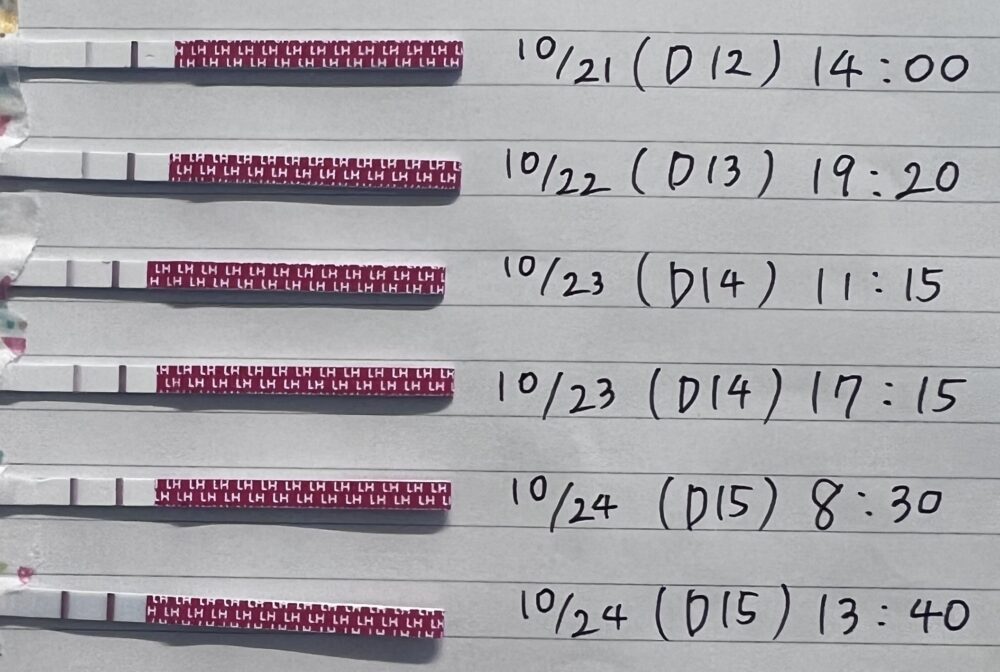 LH LH LH LH LH LH LH LH LH LH LH LH
LH LH LH LH LH LH LH LH LH LH LH LH
10/21 (D12) 14:00
LH LH LH LH LH LH LH LH LH LH LH LH
LH LH LH LH LH LH LH LH LH LH LH LH
10/22 (D13) 19:20
LH LH LH LH LH LH LH LH LH LH LH LH
H LH LH LH LH LH LH LH LH LH LH LH LH
10/23 (D14) 11:15
LH LH LH LH LH LH LH LH LH LH LH LH
LH LH LH LH LH LH LH LH LH LH LH LH
10/23 (D14) 17:15
LH LH LH LH LH LH LH LH LH LH LH LH
LH LH LH LH LH LH LH LH LH LH LH LH L
10/24 (D15) 8:30
LH LH LH LH LH LH LH LH LH LH LH LH
H LH LH LH LH LH LH LH LH LH LH LH LH
10/24 (D15) 13:40